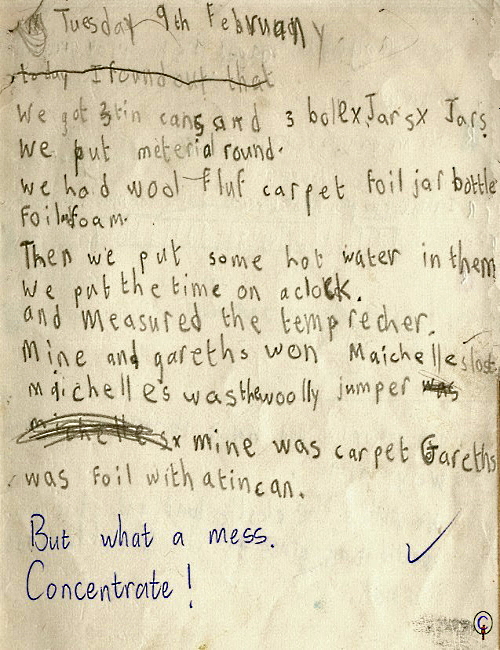 Tuesday 9th February
today I found out that
We got 3 tin cans and 3 bolex Jarsx Jars.
We put meterial round.
We had wool fluf carpet foil jar bottle
Foil foam.
Then we put some hot water in them
We put the time on a clock.
and Measured the temprecher.
Mine and gareths won Maichelles lost
maichelle's was the woolly jumper was
michelle sx mine was carpet Gareths
was foil with a tin can.
But what a mess.
Concentrate!
©